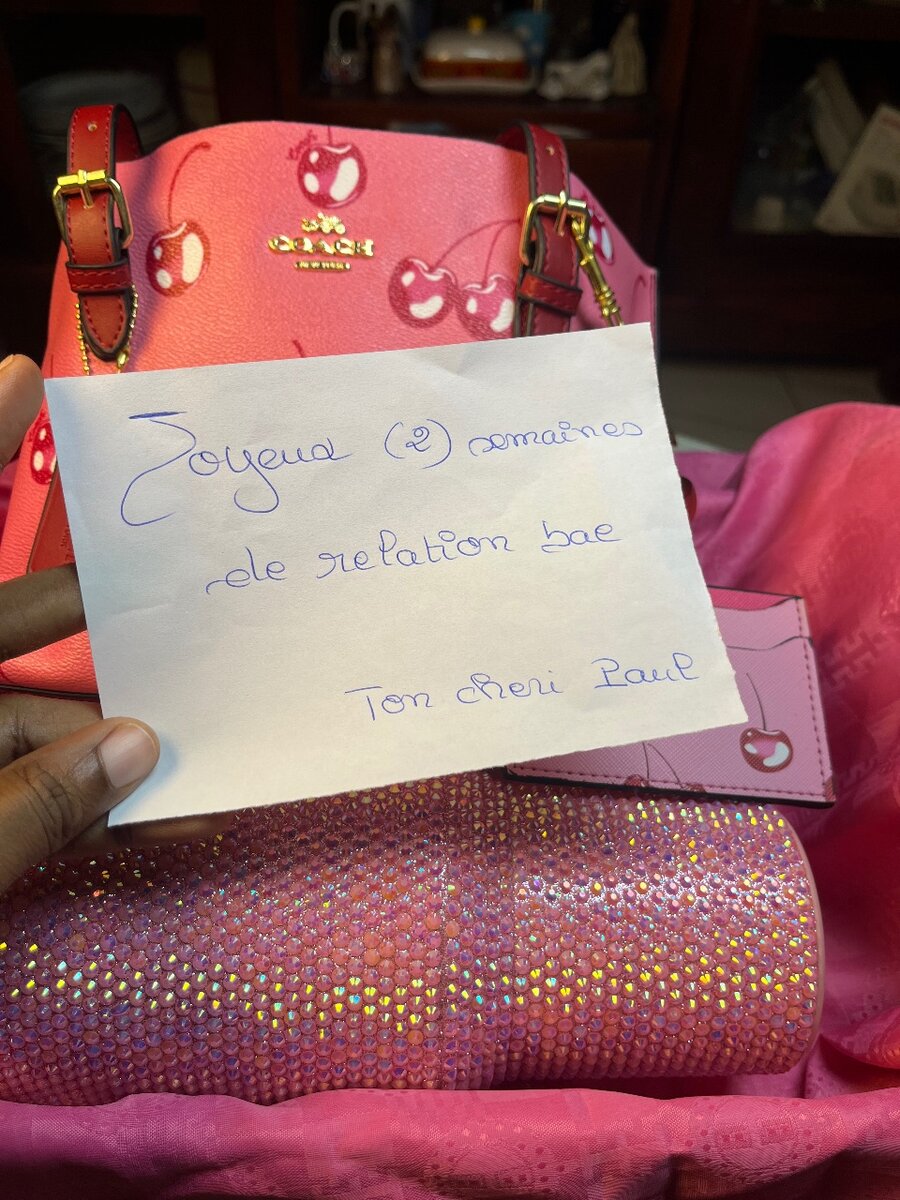 COACH
Joyeux (2) semaines
de relation bae
Ton cheri Paul